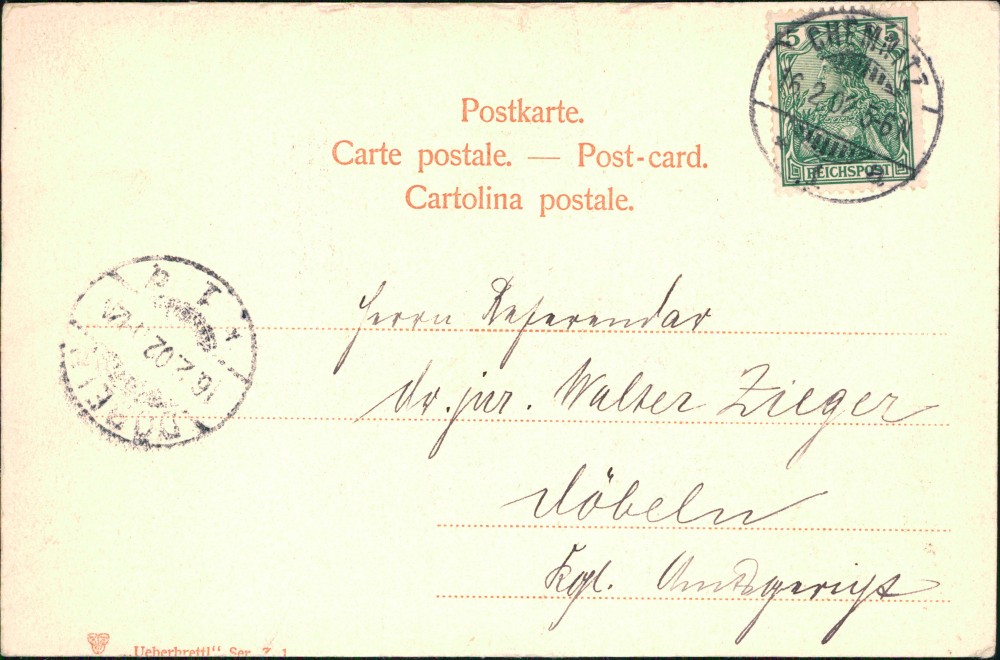 5 5
CHEMNITZ
16.2.02 5-6 N
REICHSPOST
Postkarte.
Carte postale. — Post-card.
Cartolina postale.
Herrn Referendar
Dr. jur. Walter Zieger
Döbeln
Kgl. Amtsgericht
16.2.02
„Ueberbrettl“ Ser. 7. 1